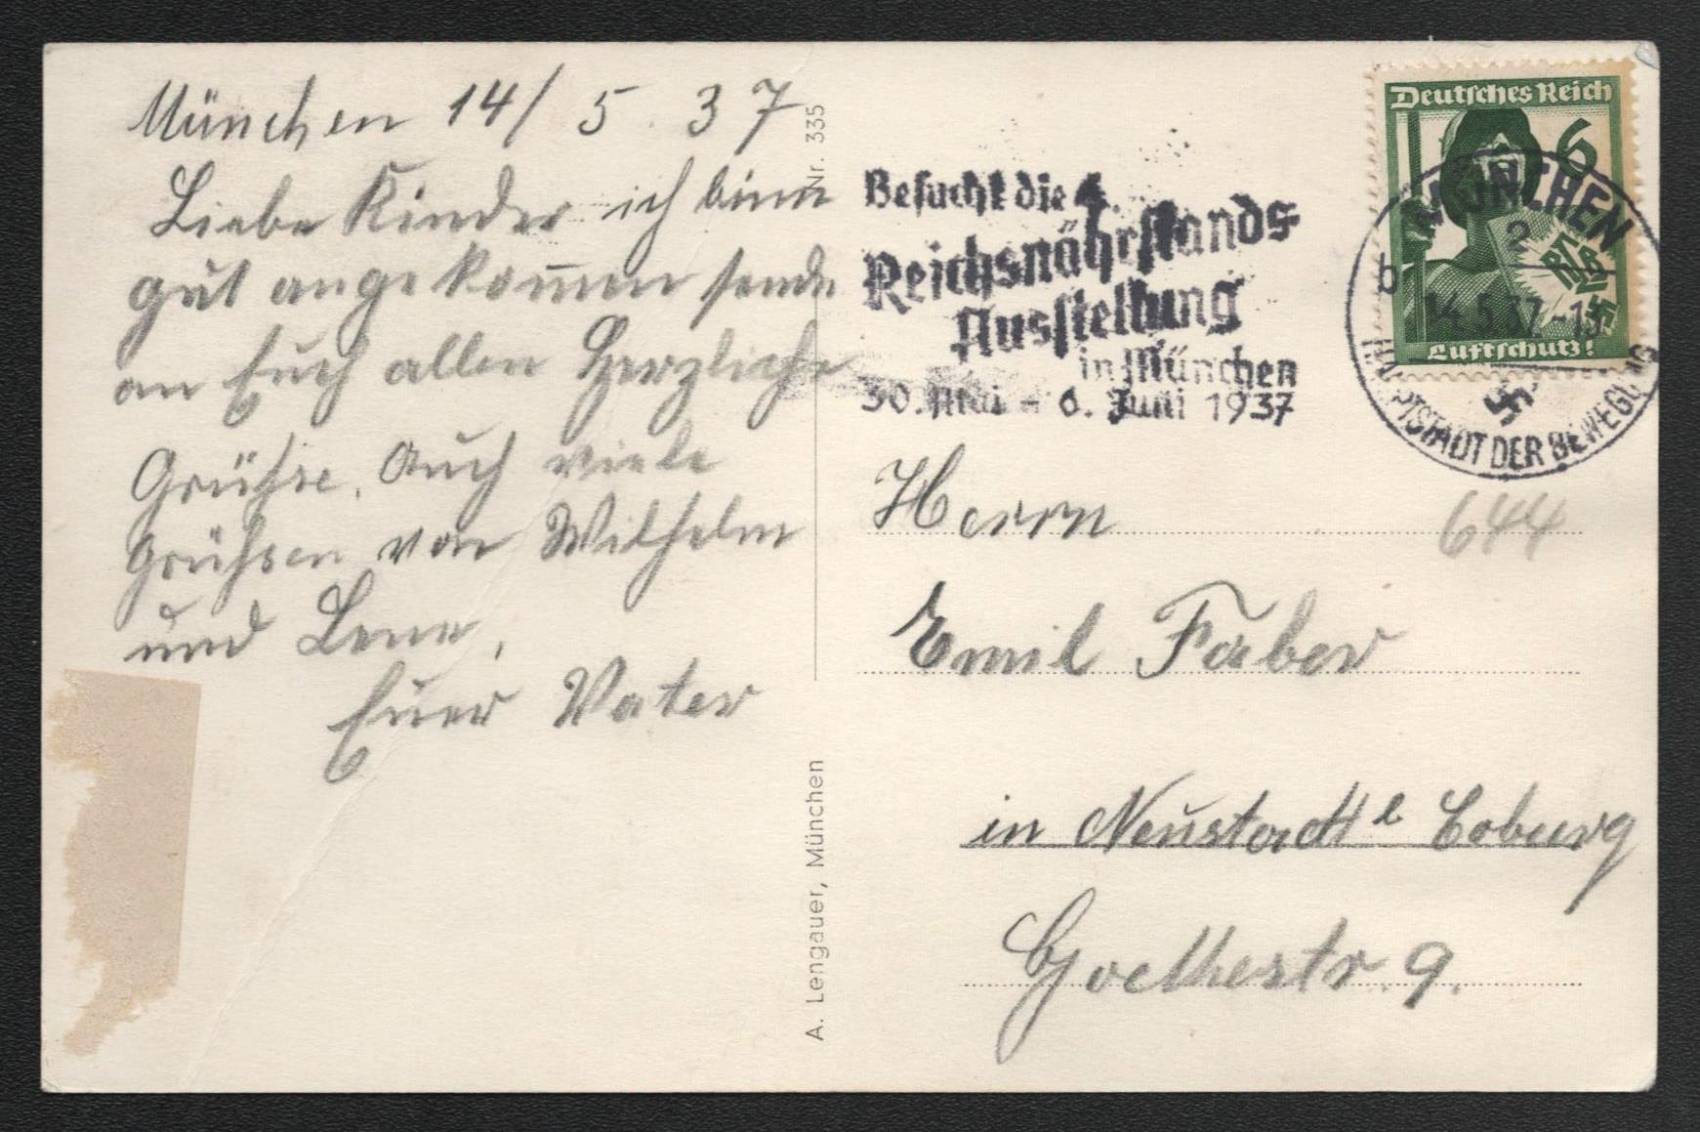 München 14/5.37
Liebe Kinder ich binn
gut angekom̅en sende
an Euch allen Herzliche
Grühse. Auch viele
Grühsen von Wilhelm
und Lene,
Euer Vater
Nr. 335
A. Lengauer, München
Besucht die 4.
Reichsnährstands-
Ausstellung
in München
30. Mai - 6. Juni 1937
Deutsches Reich
6
RLB
Luftschutz!
MÜNCHEN
2
b
14.5.37.-13
HAUPTSTADT DER BEWEGUNG
Herrn
644
Emil Faber
in Neustadt Coburg
Goethestr. 9.